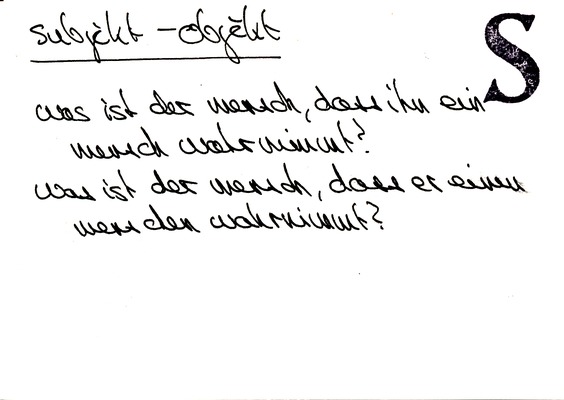 subjekt - objekt
S
was ist der mensch, dass ihn ein
mensch wahrnimmt?
was ist der mensch, dass er einen
menschen wahrnimmt?